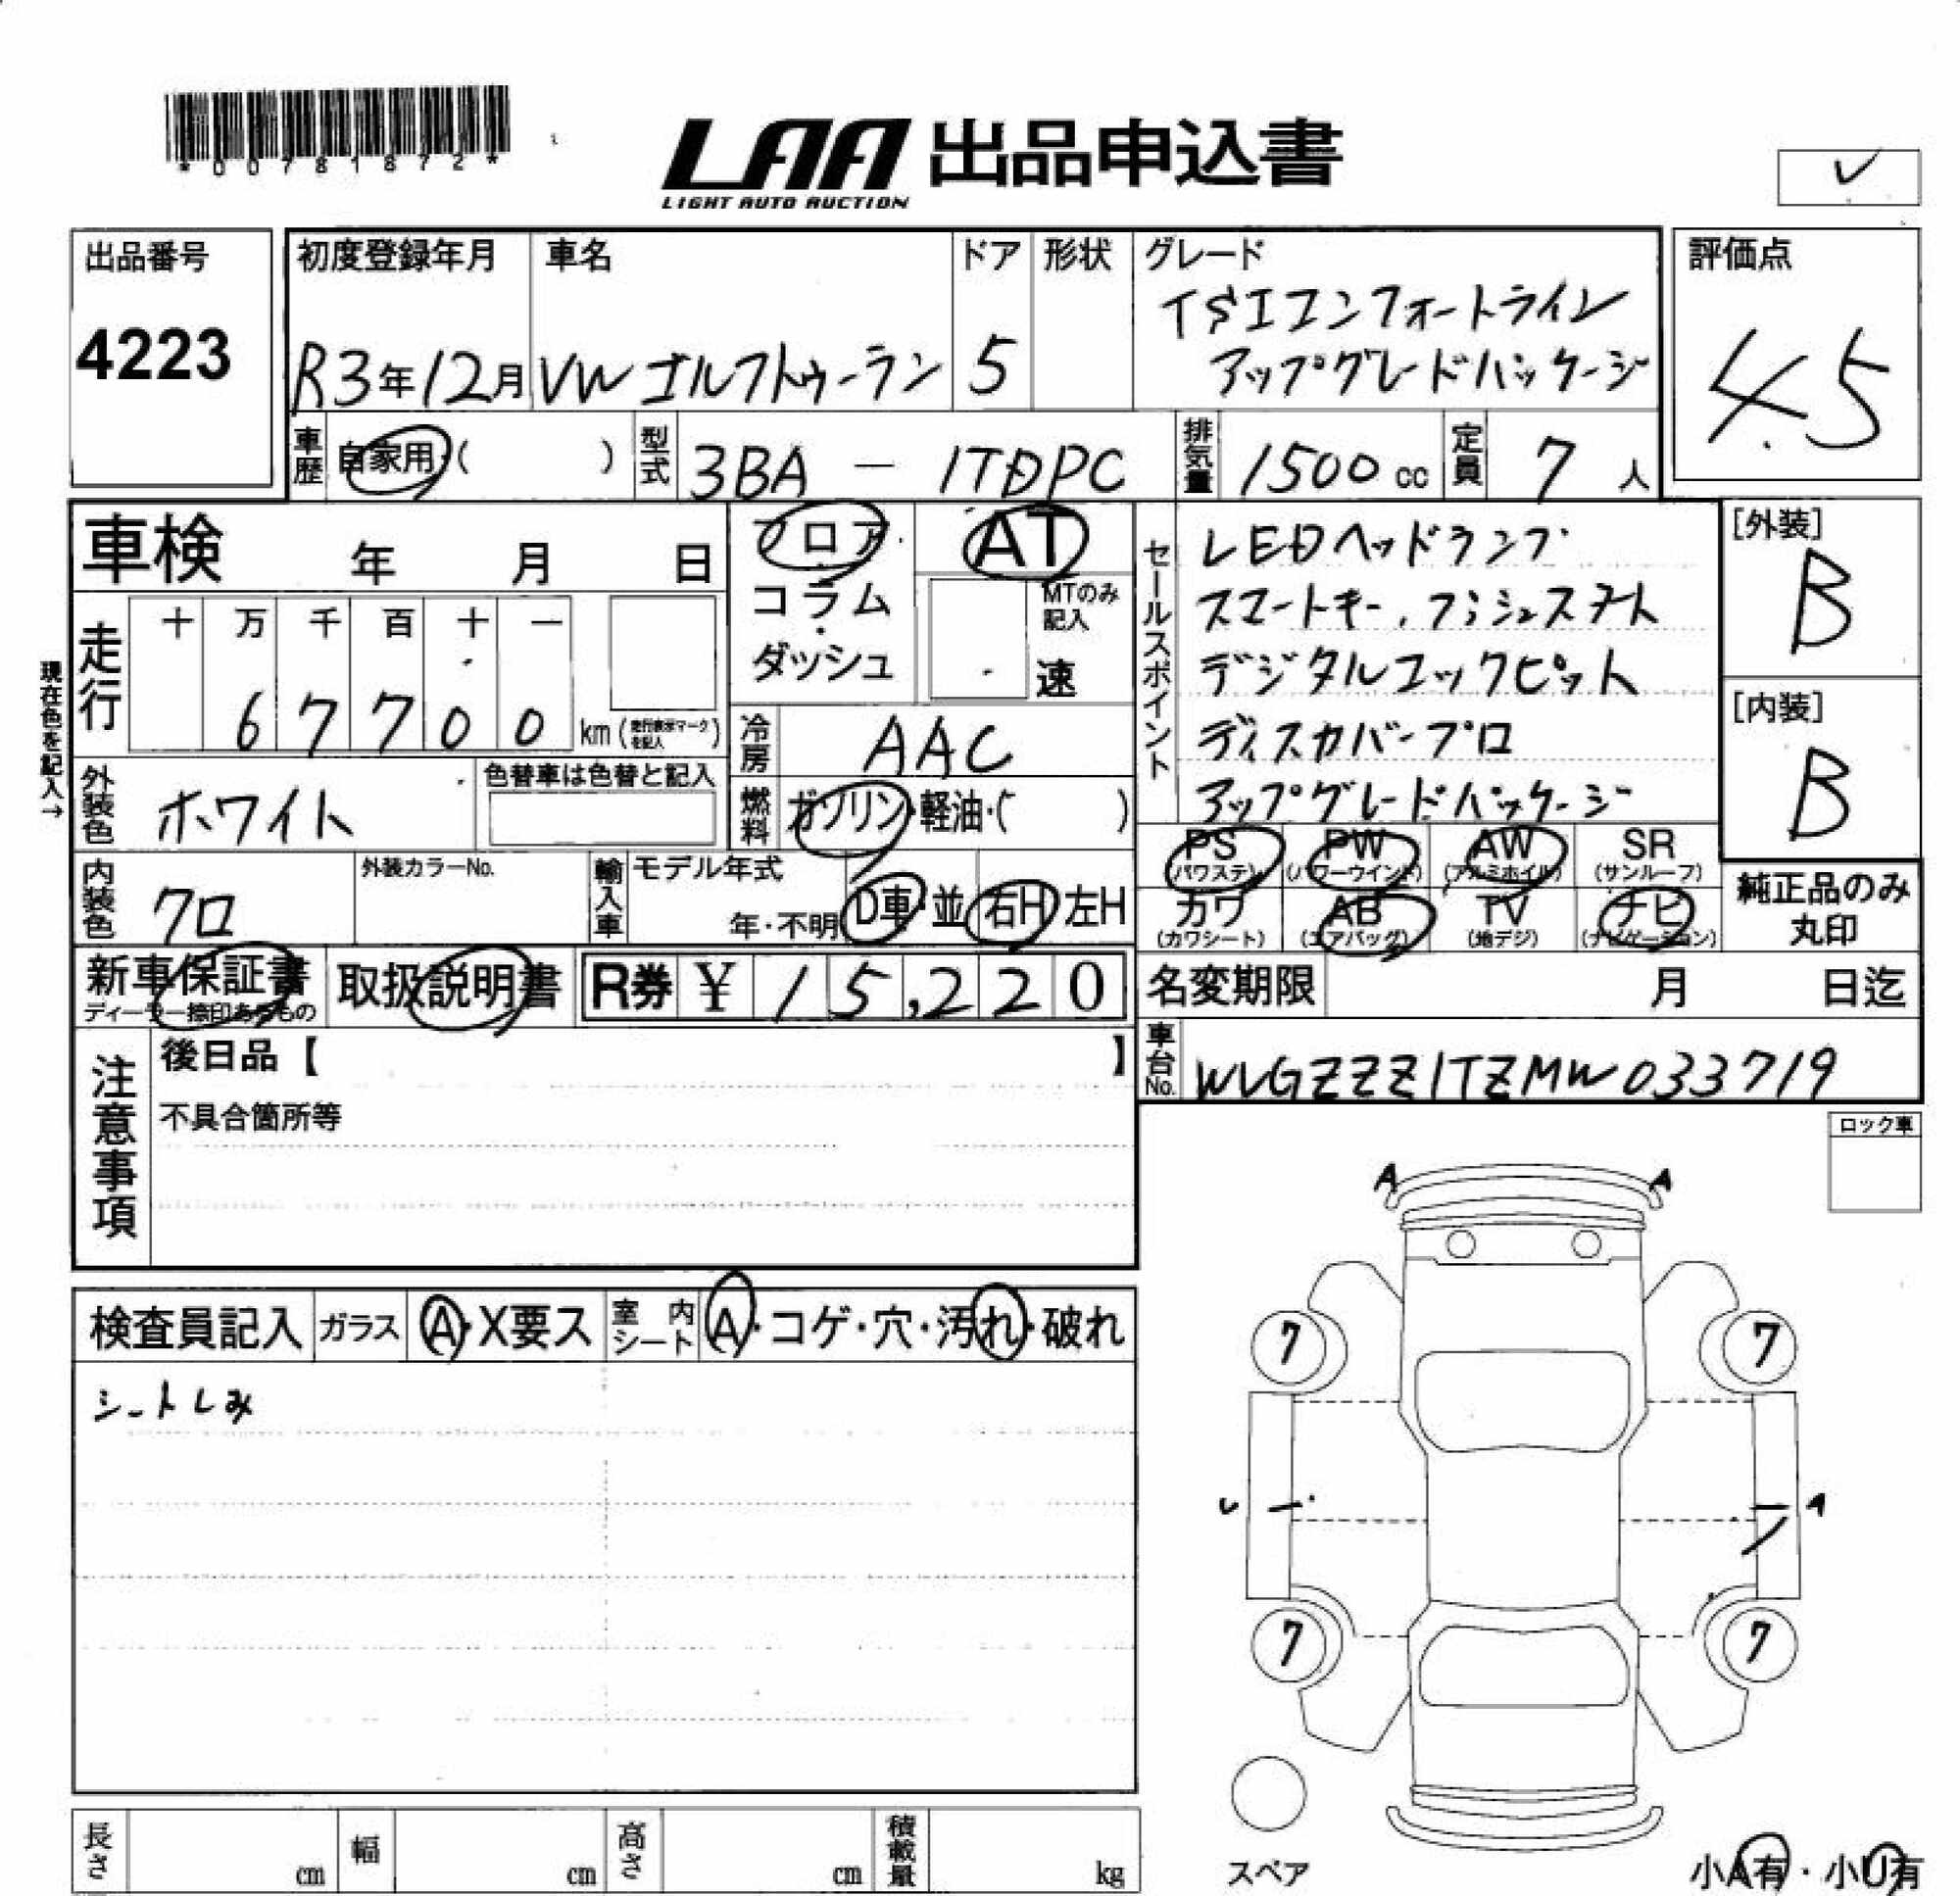 *00781872*
LAA 出品申込書
LIGHT AUTO AUCTION
出品番号
4223
初度登録年月
R3年12月
車名
VWゴルフトゥーラン
ドア
5
形状
グレード
TSIコンフォートライン
アップグレードパッケージ
評価点
4.5
車歴 自家用・( )
型式 3BA - 1TDPC
排気量 1500 cc
定員 7 人
車検 年 月 日
フロア・
コラム・
ダッシュ
AT
MTのみ記入
速
現在色を記入→
走行 十 万 千 百 十 一
67700 km (走行表示マークを記入)
冷房 AAC
外装色 ホワイト
色替車は色替と記入
燃料 ガソリン・軽油・( )
内装色 クロ
外装カラーNo.
輸入車 モデル年式
年・不明 D車・並 右H 左H
セールスポイント
LEDヘッドランプ
スマートキー、プッシュスタート
デジタルコックピット
ディスカバープロ
アップグレードパッケージ
[外装]
B
[内装]
B
PS (パワステ) PW (パワーウインド) AW (アルミホイル) SR (サンルーフ)
カワ (カワシート) AB (エアバッグ) TV (地デジ) ナビ (ナビゲーション)
純正品のみ
丸印
新車保証書
ディーラー捺印あるもの
取扱説明書
R券 ¥ 15,220
名変期限 月 日迄
車台No. WVGZZZ1TZMW033719
注意事項
後日品【 】
不具合箇所等
ロック車
検査員記入 ガラス A・X要ス 室内シート A・コゲ・穴・汚れ・破れ
シートしみ
A A
7 7
7 7
スペア
長さ cm 幅 cm 高さ cm 積載量 kg
小A有・小U有